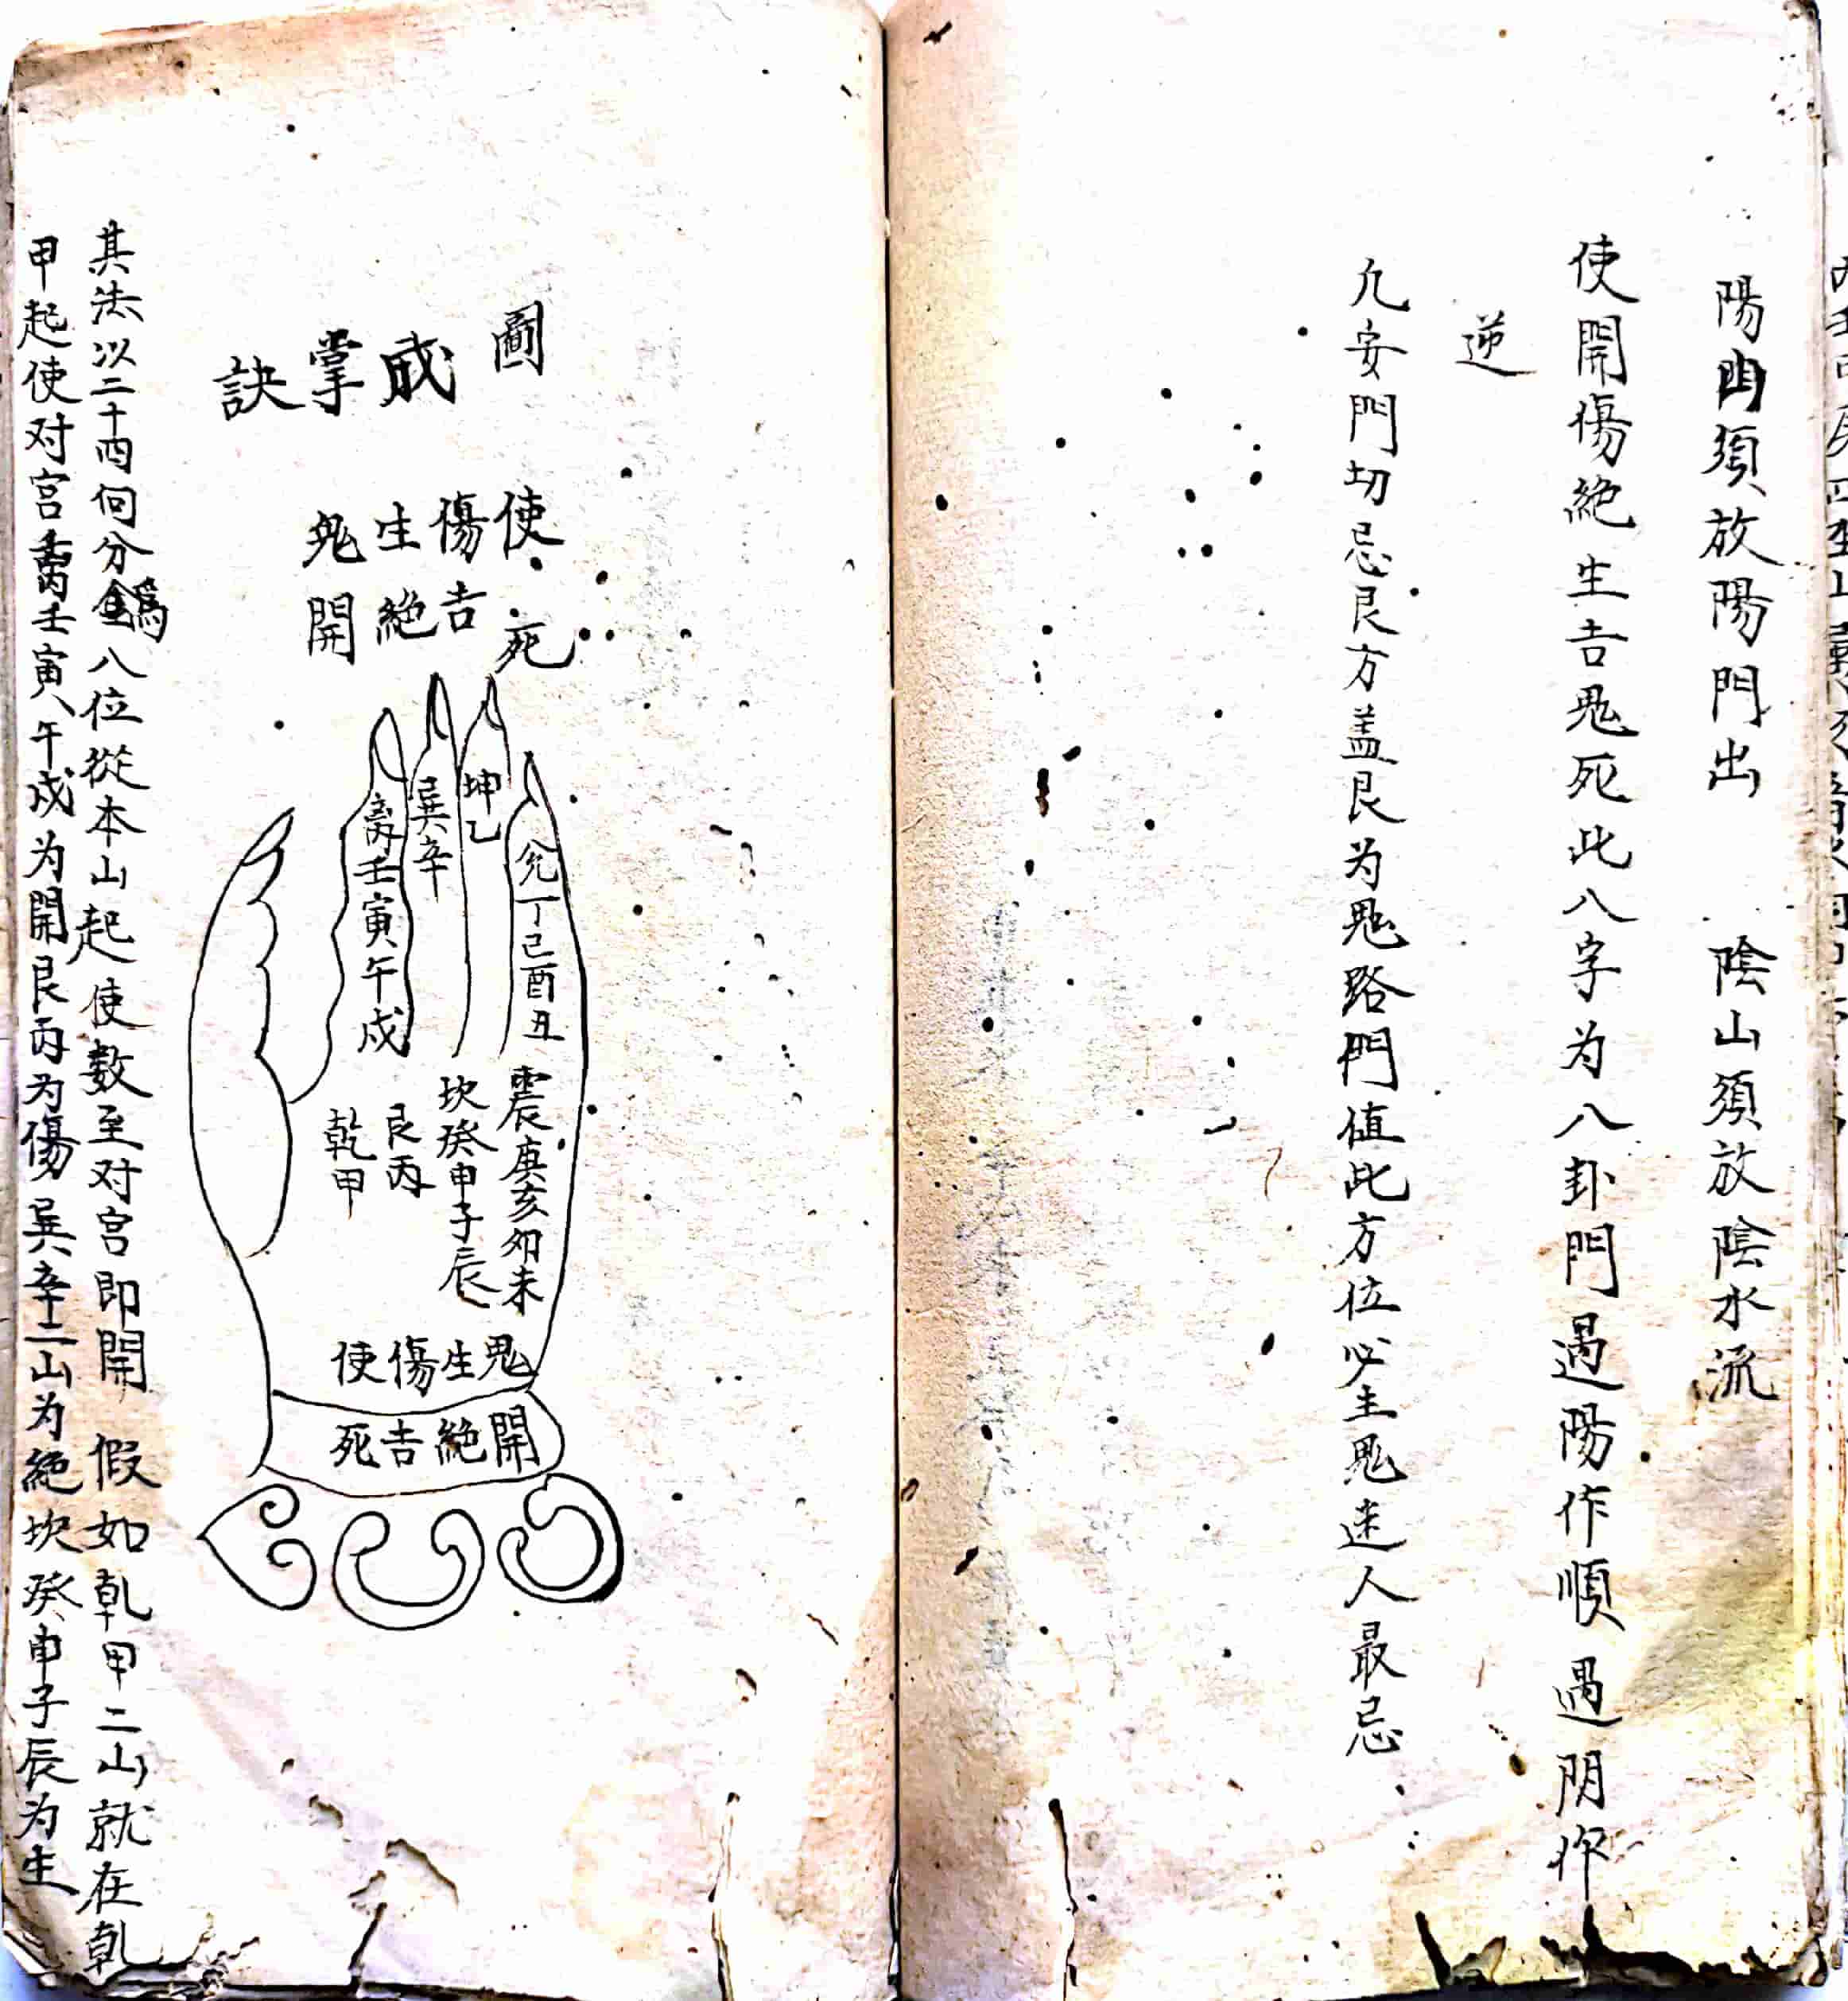 陽山須放陽門出 陰山須放陰水流
使開傷絶生吉鬼死此八字为八卦門遇陽作順遇阴作
逆
凢安門切忌艮方盖艮为鬼路門值此方位必主鬼迷人最忌
圖
成
掌
訣
使死
傷吉
生絶
鬼開
兊丁巳酉丑
坤乙
巽辛
离壬寅午戍
震庚亥卯未
坎癸申子辰
艮丙
乾甲
使傷生鬼
死吉絶開
其法以二十四向分為八位從本山起使數至对宫即開 假如乹甲二山就在乹
甲起使对宫离壬寅午戍为開艮丙为傷巽辛二山为絶坎癸申子辰为生